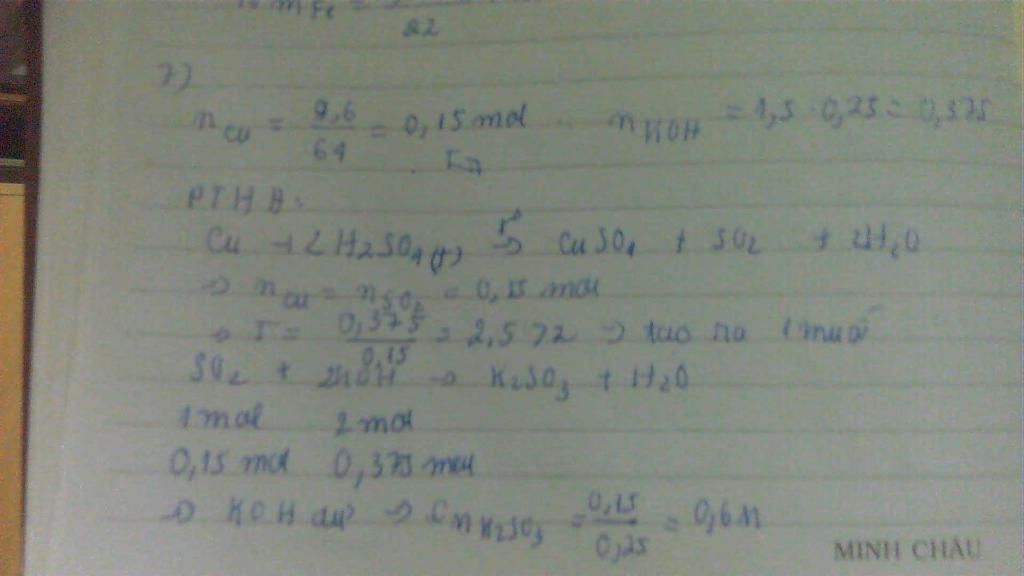 m Fe =
22
7)
n Cu = 9,6 / 64 = 0,15 mol n KOH = 1,5 . 0,25 = 0,375
PTHH:
Cu + 2H2SO4(đ) t°→ CuSO4 + SO2 + 2H2O
→ n Cu = n SO2 = 0,15 mol
→ T = 0,375 / 0,15 = 2,5 > 2 → tạo ra 1 muối
SO2 + 2KOH → K2SO3 + H2O
1 mol 2 mol
0,15 mol 0,375 mol
→ KOH dư → CM K2SO3 = 0,15 / 0,25 = 0,6M
MINH CHÂU